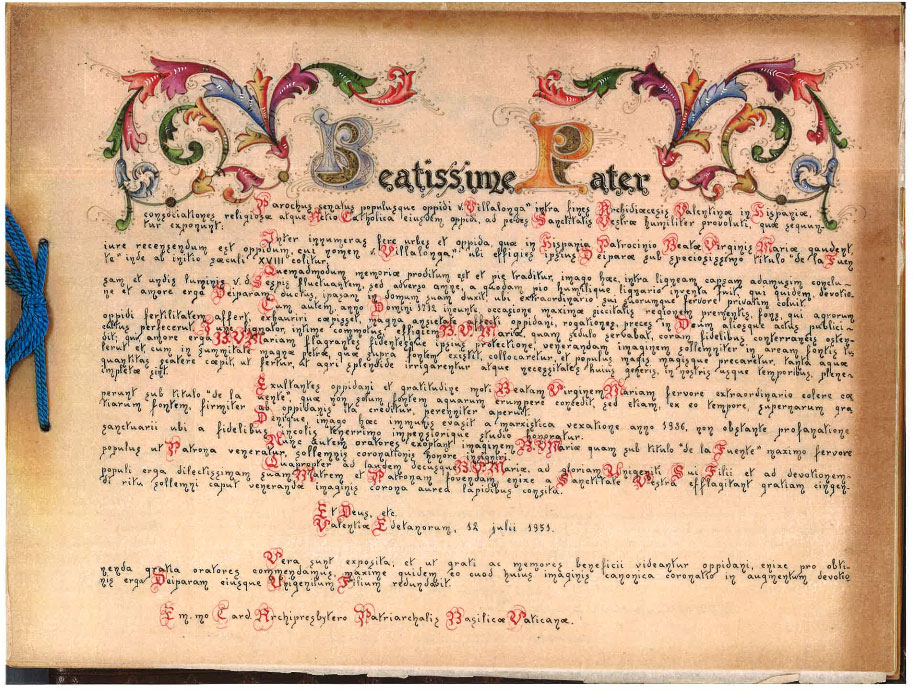 Beatissime Pater
Parochus senatus populusque oppidi v. "Villalonga" intra fines Archidiœcesis Valentinæ in Hispaniæ,
consociationes religiosæ atque Actio Catholica eiusdem oppidi, ad pedes Sanctitatis Vestræ humiliter provoluti, quæ sequun-
tur exponunt:
Inter innumeras fere urbes et oppida, quæ in Hispania Patrocinio Beatæ Virginis Mariæ gaudent,
iure recensendum est oppidum, cui nomen "Villalonga", ubi effigies ipsius Deiparæ sub speciosissimo titulo "de la Fuen
te" inde ab initio sæculi XVIII colitur.
Quemadmodum memoriæ proditum est et pie traditur, imago hæc, intra ligneam capsam adamusim conclu-
sam et undis fluminis v. d. Serpis fluctuantem, sed adverso amne, a quodam pio humilique lignario inventa fuit, qui quidem, devotio-
ne et amore erga Deiparam ductus, ipsam in domum suam duxit, ubi extraordinario sui suorumque fervore privatim coluit.
Cum autem, anno Domini 1712 ineunti, occasione maximæ siccitatis regionem prementis, fons, qui agrorum
oppidi fertilitatem affert, exhauriri cœpisset, magna anxietate affecti oppidani, rogationes, preces in Deum aliosque actus publici
cultus perfecerut. Tunc orator, intime commotus, effigiem B. V. Mariæ, quam sedulo serbabat, coram fidelibus conterraneis osten-
dit; qui, amore erga B. V. Mariam flagrantes fidentesque ipsius protectione, venerandam imaginem sollemniter in aream fontis tu-
lerut et cum in summitate magnæ petræ, quæ supra fontem existit, collocaretur, et populus magis magisque precaretur, tanta aquæ
quantitas scatere cœpit, ut fertur, ut agri splendide irrigarentur atque necessitates huius generis, in nostris usque temporibus, plene
impletæ sint.
Exultantes oppidani et gratitudine moti Beatam Virginem Mariam fervore extraordinario colere cœ
perunt sub titulo "de la Fuente", quæ non solum fontem aquarum erumpere concedit, sed etiam, ex eo tempore, supernarum gra
tiarum fontem, firmiter ab oppidanis ita creditur, perenniter aperuit.
Denique, imago hæc immunis evasit a marxistica vexatione anno 1936, non obstante profanatione
sanctuarii ubi a fidelibus incolis tenerrimo impensiorique studio honoratur.
Nunc autem oratores exoptant imaginem B. V. Mariæ quam sub titulo "de la Fuente" maximo fervore
populus ut Patrona veneratur, sollemnis coronationis honore insigniri.
Quapropter ad laudem decusque B. V. Mariæ, ad gloriam Unigeniti Sui Filii et ad devotionem
populi erga dilectissimam suam Matrem et Patronam fovendam, enixe a Sanctitate Vestra efflagitant gratiam cingen-
di ritu sollemni caput venerandæ imaginis corona aurea lapidibus consita.
Et Deus, etc.
Valentiæ Edetanorum, 12 julii 1951.
Vera sunt exposita; et ut grati ac memores beneficii videantur oppidani, enixe pro obti-
nenda gratia oratores commendamus, maxime quidem eo quod huius imaginis canonica coronatio in augmentum devotio
nis erga Deiparam eiusque Unigenitum Filium redundabit.
Em.mo Card. Archipresbytero Patriarchalis Basilicæ Vaticanæ.